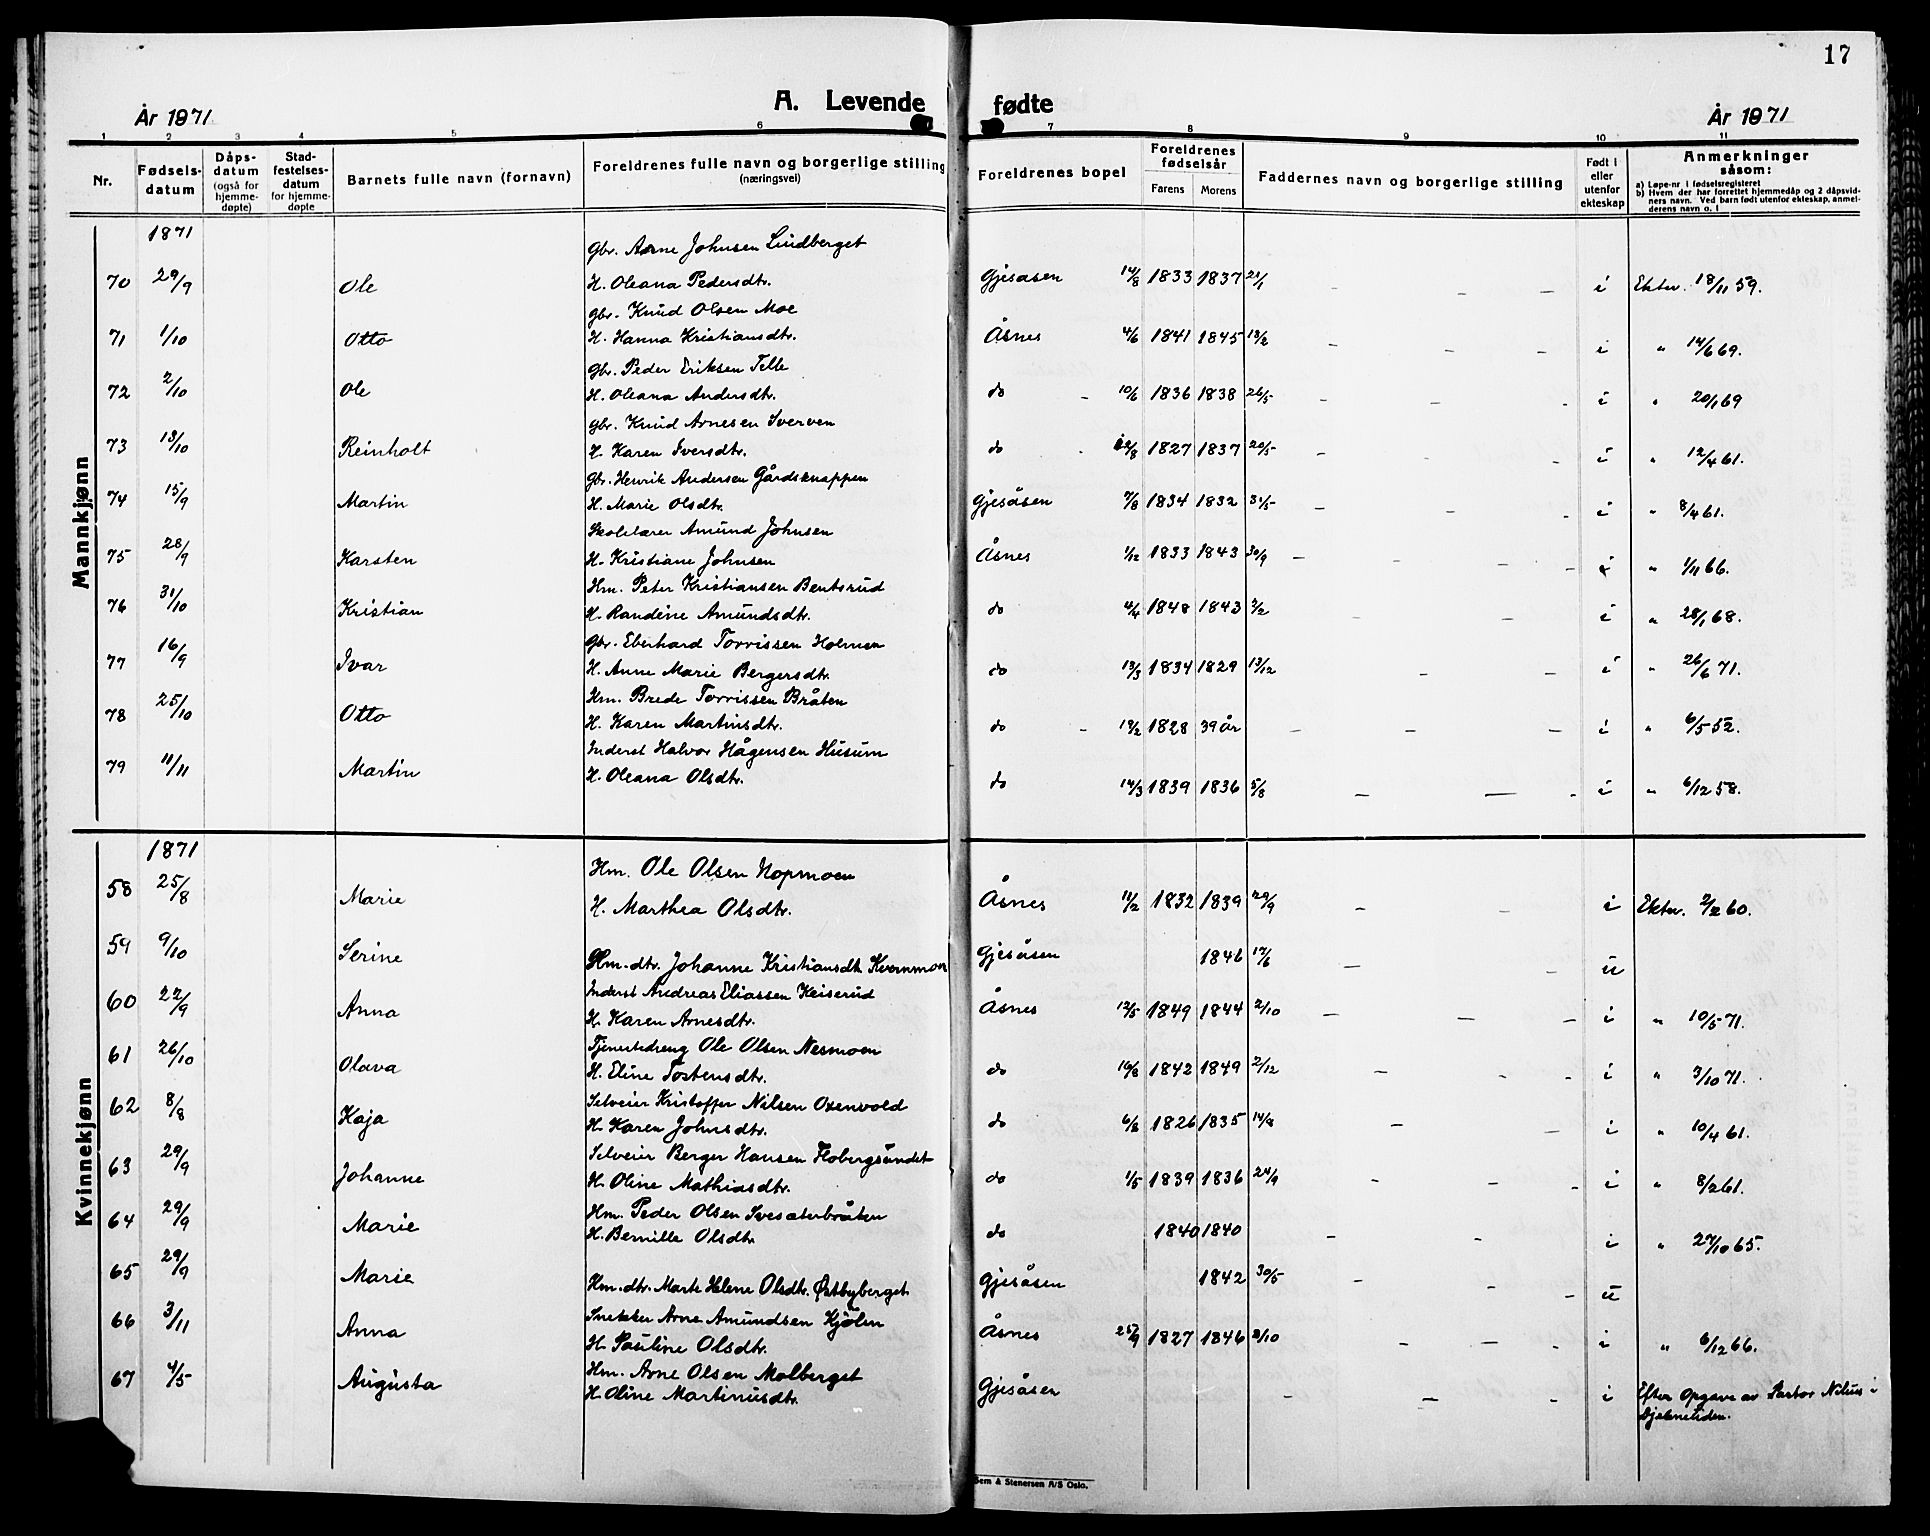 17
År 1871 A. Levende fødte År 1871
1 2 3 4 5 6 7 8 9 10 11
Nr. Fødsels-datum Dåps-datum (også for hjemme-døpte) Stad-festelses-datum for hjemme-døpte Barnets fulle navn (fornavn) Foreldrenes fulle navn og borgerlige stilling (næringsvei) Foreldrenes bopel Foreldrenes fødselsår Farens Morens Faddernes navn og borgerlige stilling Født i eller utenfor ekteskap Anmerkninger såsom: a) Løpe-nr i fødselsregisteret b) Hvem der har forrettet hjemmedåp og 2 dåpsvidners navn. Ved barn født utenfor ekteskap, anmelderens navn o. l
Mannkjønn
1871
Gbr. Arne Johnsen Lindberget
70 29/9 Ole H. Oleana Pedersdtr. Gjesåsen 14/8 1833 1837 21/1 – – – i Ektev. 18/11 59.
Gbr. Knud Olsen Moe
71 1/10 Otto H. Hanna Kristiansdtr. Åsnes 4/6 1841 1845 13/2 – – – i " 14/6 69.
Gbr. Peder Eriksen Telle
72 2/10 Ole H. Oleana Andersdtr. do – 10/6 1836 1838 26/5 – – - i " 20/1 69
Gbr. Knud Arnesen Sverven
73 13/10 Reinholt H. Karen Iversdtr. do - 22/8 1827 1837 20/5 – – - i " 12/4 61.
Gbr. Henrik Andersen Gårdsknappen
74 15/9 Martin H. Marie Olsdtr. Gjesåsen 7/8 1834 1832 31/5 – – - i " 8/4 61.
Skolelærer Amund Johnsen
75 28/9 Karsten H. Kristiane Johnsen Åsnes 1/12 1833 1843 30/9 – – – - i " 1/11 66.
Hm. Peter Kristiansen Bentsrud
76 31/10 Kristian H. Randine Amundsdtr. do 4/4 1848 1843 2/2 – – – i " 28/1 68.
Gbr. Eberhard Torrissen Holmen
77 16/9 Ivar H. Anne Marie Bergersdtr. do 13/3 1834 1829 13/12 – – – i " 26/6 71.
Hm. Brede Torrissen Bråten
78 25/10 Otto H. Karen Martinsdtr. do – 19/2 1828 39 år – – – i " 6/5 52.
Inderst Halvor Hågensen Husum
79 11/11 Martin H. Oleana Olsdtr. do 14/3 1839 1836 5/8 – – - i " 6/12 58.
Kvinnekjønn
1871
Hm. Ole Olsen Nopmoen
58 25/8 Marie H. Marthea Olsdtr. Åsnes 11/2 1832 1839 29/9 – – – i Ektev. 2/2 60.
59 9/10 Serine Hm.-dtr. Johanne Kristiansdtr. Kvernmoen Gjesåsen 1846 17/6 – – u
Inderst Andreas Eliassen Keiserud
60 22/9 Anna H. Karen Arnesdtr. Åsnes 12/5 1849 1844 2/10 – – – i " 10/5 71.
Tjenestedreng Ole Olsen Nesmoen
61 26/10 Olava H. Eline Tostensdtr. do 16/8 1842 1849 2/12 – – – i " 3/10 71.
Selveier Kristoffer Nilsen Oxenvold
62 8/8 Kaja H. Karen Johnsdtr. do 6/8 1826 1835 14/8 – – i " 10/4 61.
Selveier Berger Hansen Flobergsundet
63 29/9 Johanne H. Oline Mathiasdtr. do 1/5 1839 1836 24/9 – – - i " 8/2 61.
Hm. Peder Olsen Svesæterbråten
64 29/9 Marie H. Bernille Olsdtr. do 1840 1840 – – i " 27/10 65.
65 29/9 Marie Hm.-dtr. Marte Helene Olsdtr. Østbyberget Gjesåsen 1842 30/5 – – – u
Snekker Arne Amundsen Kjølen
66 3/11 Anna H. Pauline Olsdtr. Åsnes 25/9 1827 1846 2/10 – – i " 6/12 66.
Hm. Arne Olsen Malberget
67 4/5 Augusta H. Oline Martinusdtr. Gjesåsen – – - i Efter Opgave av Pastor Nilus i
Djekneliden.
Sem & Stenersen A/S Oslo.